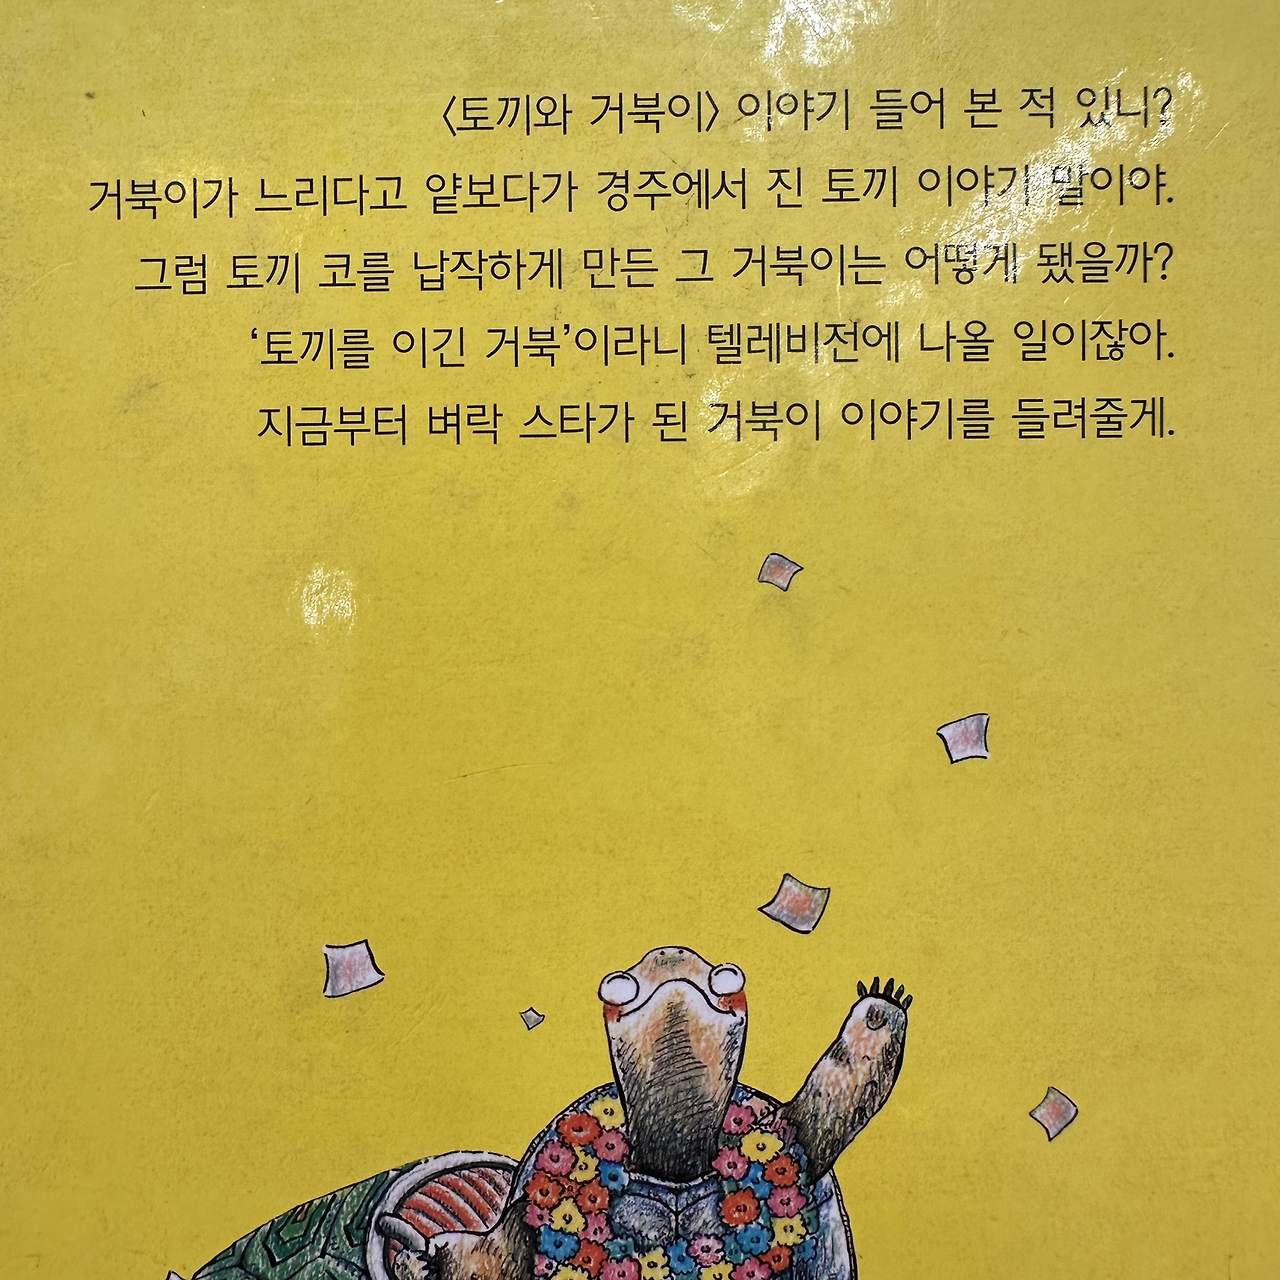 <토끼와 거북이> 이야기 들어 본 적 있니?
거북이가 느리다고 얕보다가 경주에서 진 토끼 이야기 말이야.
그럼 토끼 코를 납작하게 만든 그 거북이는 어떻게 됐을까?
‘토끼를 이긴 거북’이라니 텔레비전에 나올 일이잖아.
지금부터 벼락 스타가 된 거북이 이야기를 들려줄게.